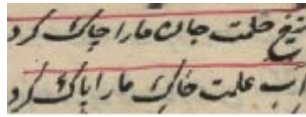 تیغ حلت جان مارا چاک کرد
آب علت خاک مارا پاک کرد